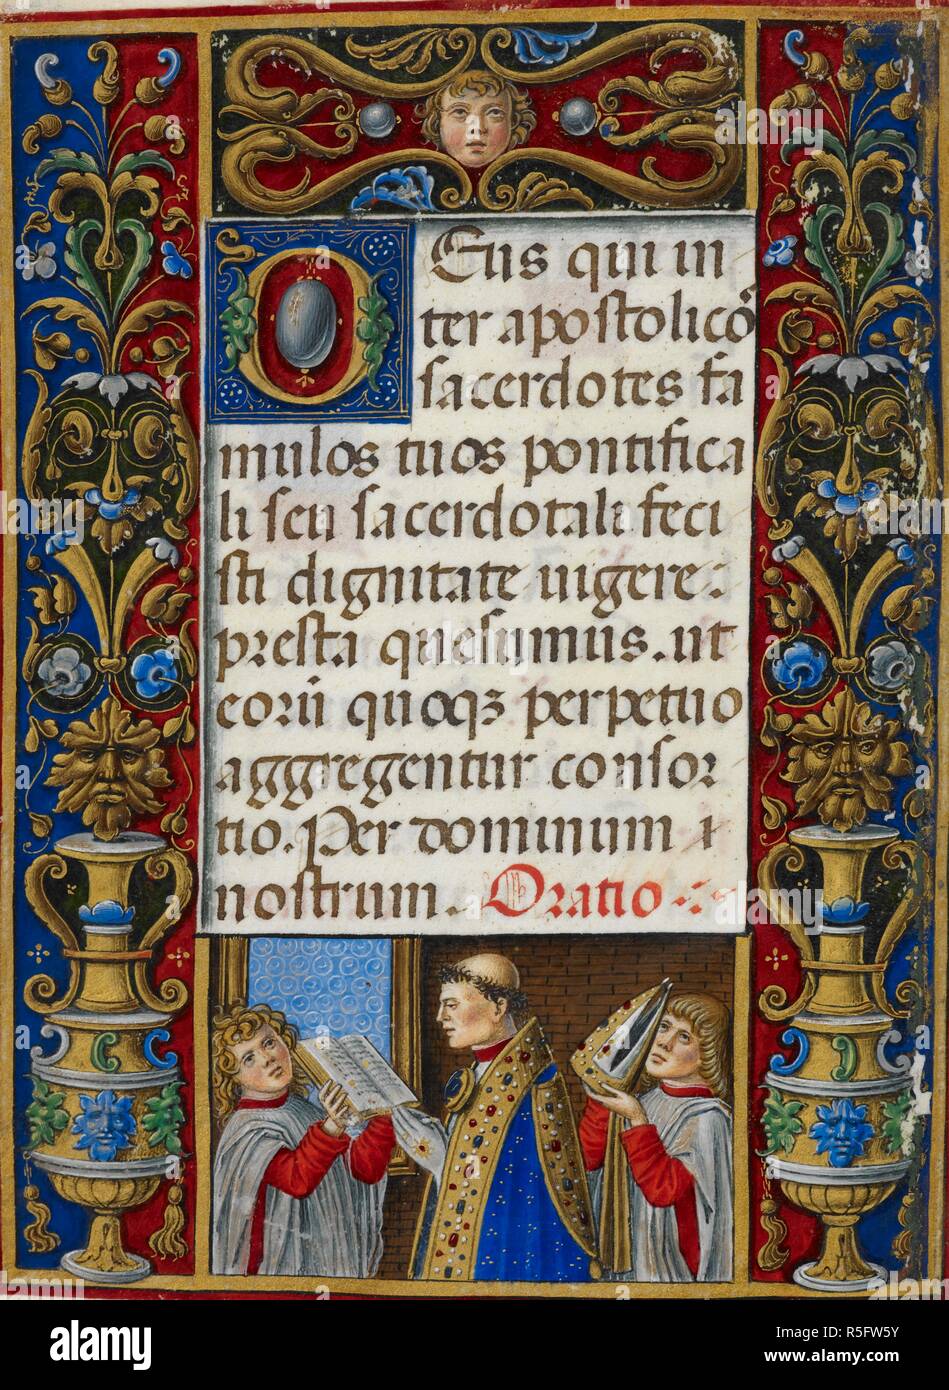 Deus qui in
ter apostolicõ
sacerdotes fa
mulos tuos pontifica
li seu sacerdotali feci
sti dignitate uigere :
presta quesumus . ut
corū quoqꝫ perpetuo
aggregentur consor
tio. Per dominum ı
nostrum . Oratio :~
alamy stock photo
R5FW5Y
www.alamy.com